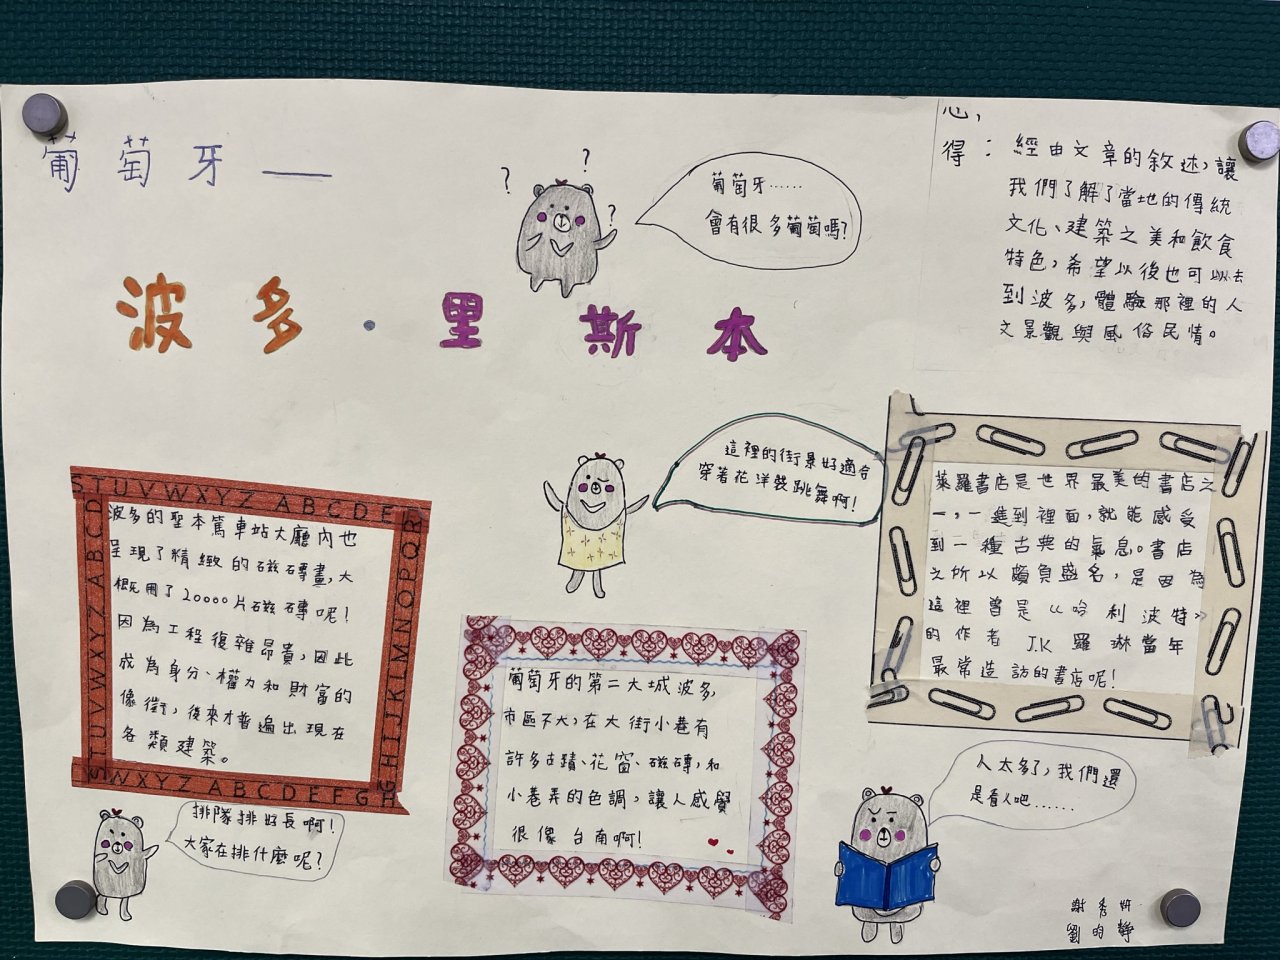 葡萄牙——
波多·里斯本
?
?
?
葡萄牙……
會有很多葡萄嗎?
心
得：經由文章的敘述,讓
我們了解了當地的傳統
文化、建築之美和飲食
特色,希望以後也可以去
到波多,體驗那裡的人
文景觀與風俗民情。
這裡的街景好適合
穿著花洋裝跳舞啊!
STUVWXYZ ABCDE
波多的聖本篤車站大廳內也
呈現了精緻的磁磚畫,大
概用了20000片磁磚呢!
因為工程復雜昂貴,因此
成為身分、權力和財富的
像徵,後來才普遍出現在
各類建築。
TUVWXYZ ABCD
GHIJKLMNOPQR
WXYZ ABCDEFGH
排隊排好長啊!
大家在排什麼呢?
葡萄牙的第二大城波多,
市區不大,在大街小巷有
許多古蹟、花窗、磁磚,和
小巷弄的色調,讓人感覺
很像台南啊!
萊羅書店是世界最美的書店之
一,一進到裡面,就能感受
到一種古典的氣息。書店
之所以頗負盛名,是因為
這裡曾是《哈利波特》
的作者 J.K 羅琳當年
最常造訪的書店呢!
人太多了,我們還
是看人吧……
謝秀妍
劉昀靜